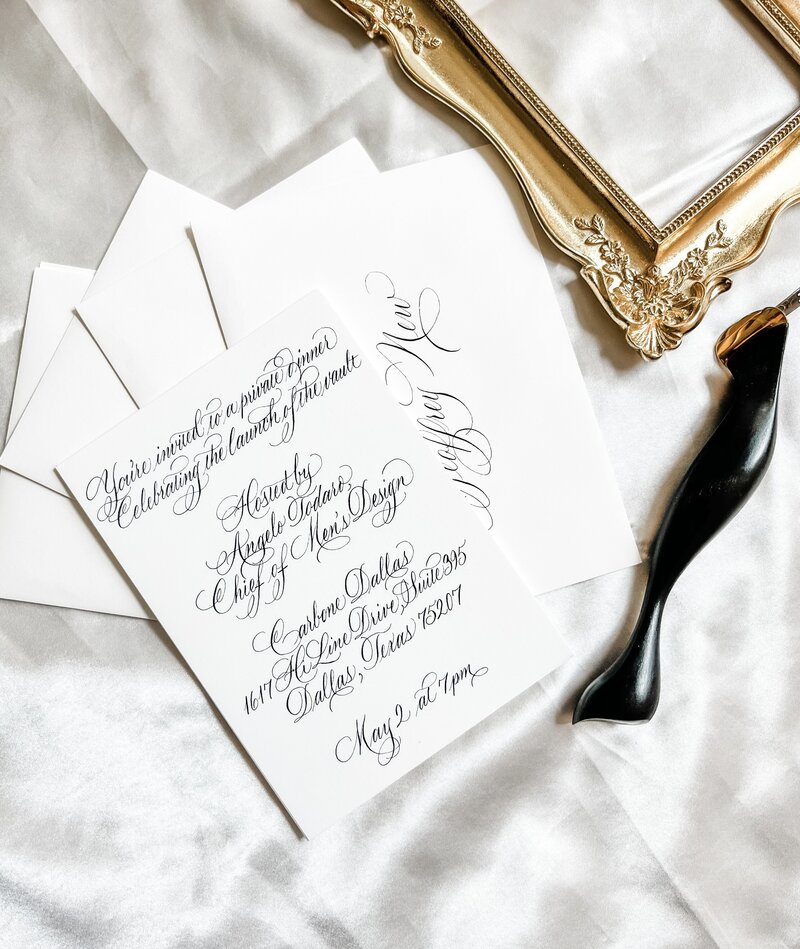 You're invited to a private dinner
Celebrating the launch of the vault
Hosted by
Angelo Todaro,
Chief of Men's Design
Carbone Dallas
1617 Hi Line Drive, Suite 395
Dallas, Texas 75207
May 2 at 7 pm
Geoffrey New